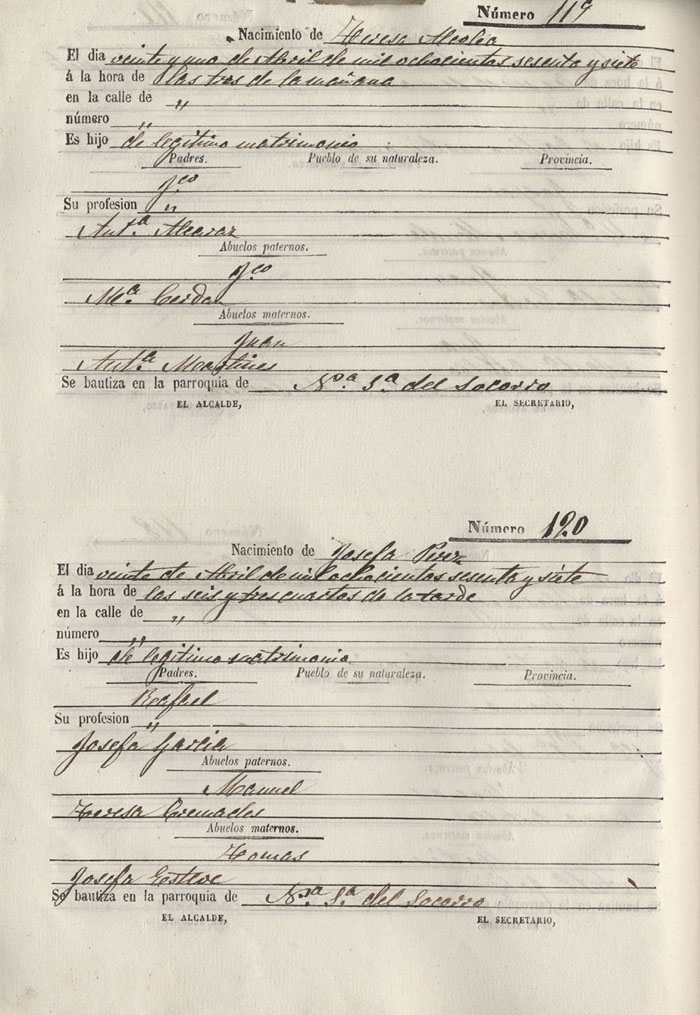 Número 119
Nacimiento de Teresa Alcolea
El dia veinte y uno de Abril de mil ochocientos sesenta y siete
á la hora de las tres de la mañana
en la calle de "
número "
Es hijo de legitimo matrimonio
Padres. Pueblo de su naturaleza. Provincia.
Fco
Su profesion "
Anta. Alcaraz
Abuelos paternos.
Fco
Ma. Cerdan
Abuelos maternos.
Juan
Anta. Martines
Se bautiza en la parroquia de Nª. Sª. del Socorro
EL ALCALDE, EL SECRETARIO,
Número 120
Nacimiento de Josefa Perez
El dia veinte de Abril de mil ochocientos sesenta y siete
á la hora de las seis y tres cuartos de la tarde
en la calle de "
número "
Es hijo de legitimo matrimonio
Padres. Pueblo de su naturaleza. Provincia.
Rafael
Su profesion "
Josefa Garcia
Abuelos paternos.
Manuel
Teresa Cremades
Abuelos maternos.
Tomas
Josefa Esteve
Se bautiza en la parroquia de Nsª. Sª. del Socorro
EL ALCALDE, EL SECRETARIO,